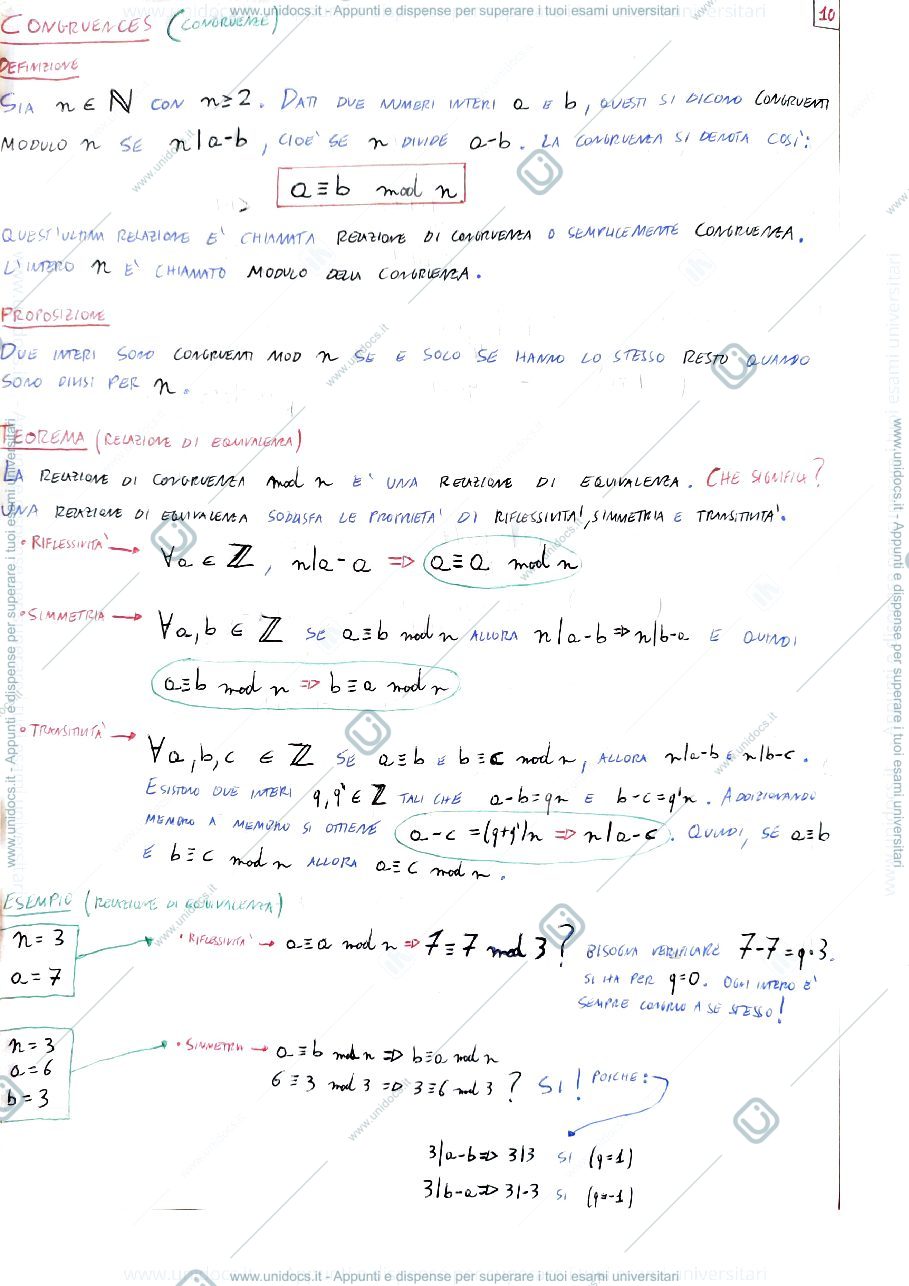 www.unidocs.it - Appunti e dispense per superare i tuoi esami universitari
10
CONGRUENCES (CONGRUENZE)
DEFINIZIONE
SIA n ∈ ℕ CON n ≥ 2. DATI DUE NUMERI INTERI a E b, QUESTI SI DICONO CONGRUENTI
MODULO n SE n|a-b, CIOE' SE n DIVIDE a-b. LA CONGRUENZA SI DENOTA COSI':
a ≡ b mod n
QUEST'ULTIMA RELAZIONE E' CHIAMATA RELAZIONE DI CONGRUENZA O SEMPLICEMENTE CONGRUENZA.
L'INTERO n E' CHIAMATO MODULO DELLA CONGRUENZA.
PROPOSIZIONE
DUE INTERI SONO CONGRUENTI MOD n SE E SOLO SE HANNO LO STESSO RESTO QUANDO
SONO DIVISI PER n.
TEOREMA (RELAZIONE DI EQUIVALENZA)
LA RELAZIONE DI CONGRUENZA mod n E' UNA RELAZIONE DI EQUIVALENZA. CHE SIGNIFICA?
UNA RELAZIONE DI EQUIVALENZA SODDISFA LE PROPRIETA' DI RIFLESSIVITA', SIMMETRIA E TRANSITIVITA'.
• RIFLESSIVITA' → ∀a ∈ ℤ, n|a-a ⇒ a ≡ a mod n
• SIMMETRIA → ∀a,b ∈ ℤ SE a≡b mod n ALLORA n|a-b ⇒ n|b-a E QUINDI
a≡b mod n ⇒ b≡a mod n
• TRANSITIVITA' → ∀a,b,c ∈ ℤ SE a≡b E b≡c mod n, ALLORA n|a-b E n|b-c.
ESISTONO DUE INTERI q,q' ∈ ℤ TALI CHE a-b=qn E b-c=q'n. ADDIZIONANDO
MEMBRO A MEMBRO SI OTTIENE a-c=(q+q')n ⇒ n|a-c. QUINDI, SE a≡b
E b≡c mod n ALLORA a≡c mod n.
ESEMPIO (RELAZIONE DI EQUIVALENZA)
n=3
a=7
• RIFLESSIVITA' → a≡a mod n ⇒ 7≡7 mod 3? BISOGNA VERIFICARE 7-7=q·3.
SI HA PER q=0. OGNI INTERO E'
SEMPRE CONGRUO A SE STESSO!
n=3
a=6
b=3
• SIMMETRIA → a≡b mod n ⇒ b≡a mod n
6≡3 mod 3 ⇒ 3≡6 mod 3? SI! POICHE':
3|a-b ⇒ 3|3 SI (q=1)
3|b-a ⇒ 3|-3 SI (q=-1)
www.unidocs.it - Appunti e dispense per superare i tuoi esami universitari